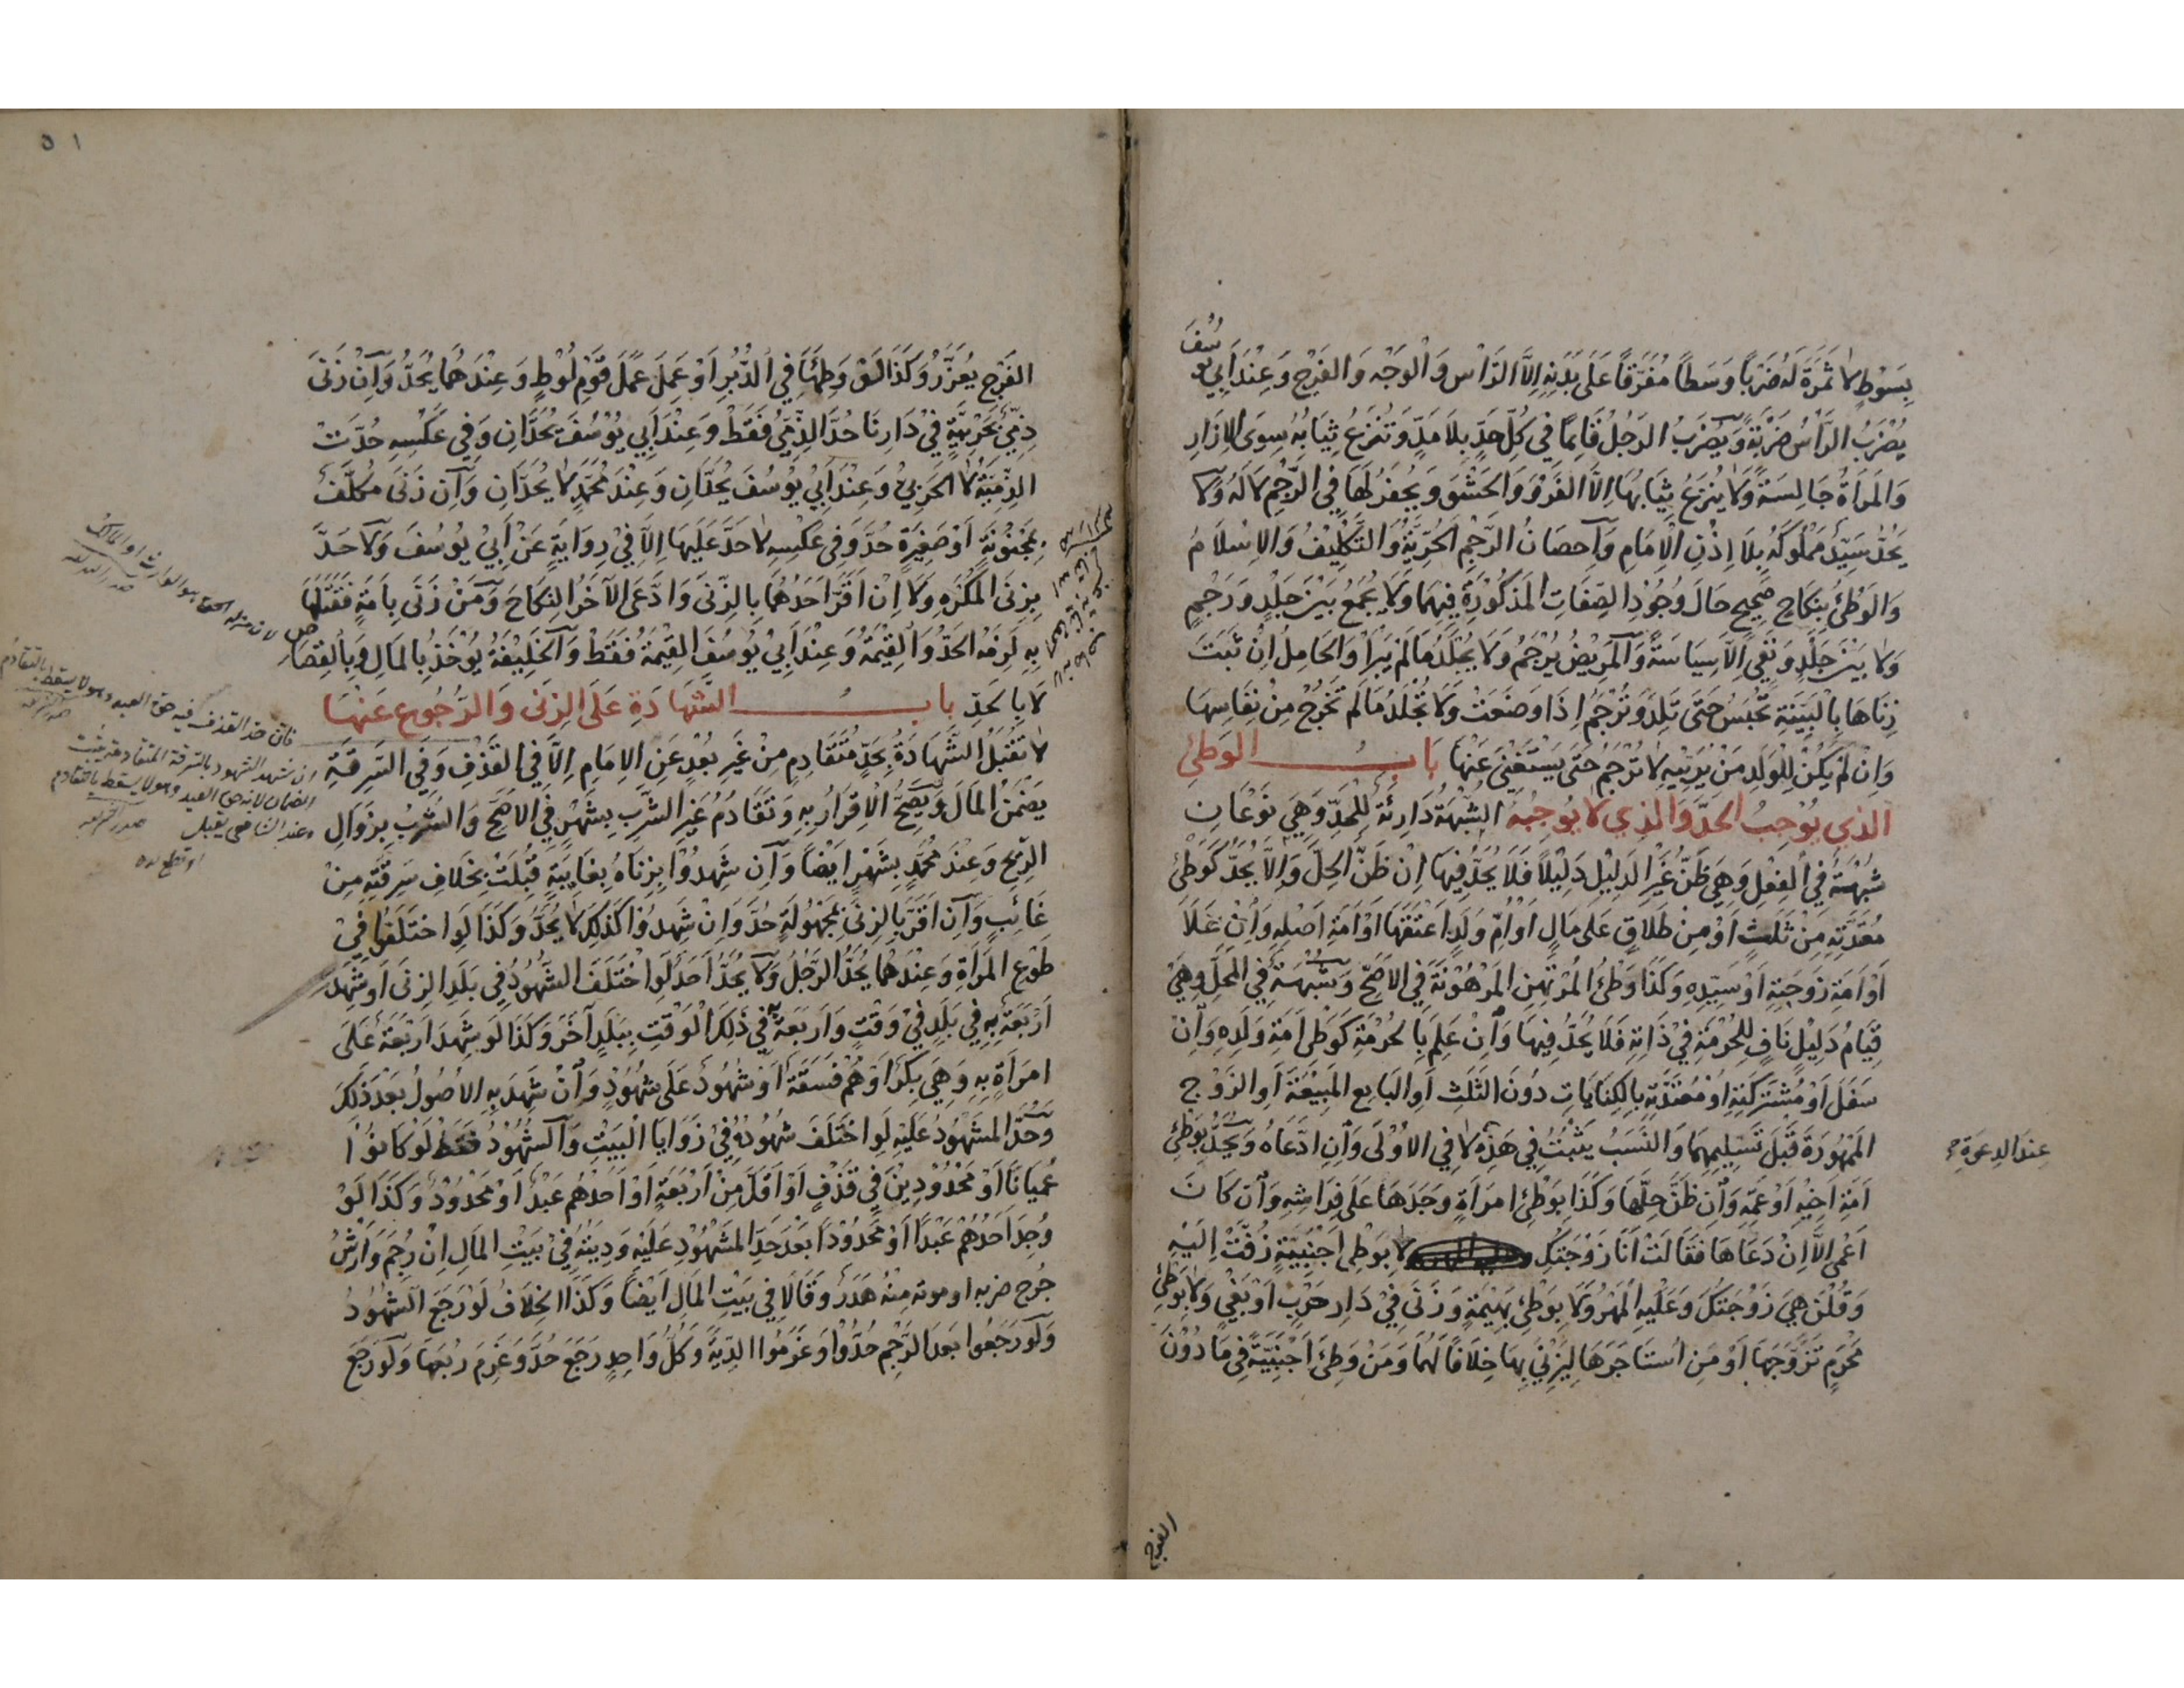 بِسَوْطٍ لا ثَمَرَةَ لَهُ ضَرْبًا وَسَطًا مُفَرَّقًا عَلَى بَدَنِهِ اِلَّا الرَّاْسَ وَالْوَجْهَ وَالفَرْجَ وَعِنْدَ اَبِي يوسُفَ
يُضْرَبُ الرَّأْسُ ضَرْبَةً وَيُضْرَبُ الرَجُلُ قَائِمًا فِي كُلِّ حَدٍّ بِلَا مَدٍّ وَتُنْزَعُ ثِيَابُهُ سِوَى الاِزَارِ
وَالمَراَةُ جَالِسَةً وَلَا يُنزَعُ ثِيَابُهَا اِلَّا الفَرْوَ وَالحَشْوَ وَيُحفَرُ لَهَا فِي الرَّجْمِ لَا لَهُ وَلَا
يَحُدُّ سَيِّدٌ مَمْلُوكَهُ بِلَا اِذْنِ الْاِمَامِ وَاِحصَانُ الرَّجْمِ الحُرِّيَّةُ وَالتَّكْلِيْفُ وَالاِسْلَامُ
وَالوَطْئُ بِنِكَاحٍ صَحِيحٍ حَالَ وُجُودِ الصِفَاتِ المَذكُورَةِ فِيهِمَا وَلَا يُجْمَعُ بَيْنَ جَلْدٍ وَرَجْمٍ
وَلَا بَيْنَ جَلْدٍ وَنَفْيٍ اِلَّا سِيَاسَةً وَالمَرِيْضُ يُرْجَمُ وَلَا يُجْلَدُ مَا لَمْ يَبْرَأْ وَالحَامِلُ اِنْ ثَبَتَ
زِنَاهَا بِالْبَيِّنَةِ تُحْبَسُ حَتَّى تَلِدَ وَتُرْجَمُ اِذَا وَضَعَتْ وَلَا تُجْلَدُ مَا لَمْ تَخْرُجْ مِنْ نِفَاسِهَا
وَاِنْ لَمْ يَكُنْ لِلْوَلَدِ مَنْ يُرَبِّيْهِ لَا تُرْجَمُ حَتَّى يَسْتَغْنِيَ عَنْهَا بَابُ الوَطْئِ
الذي يُوْجِبُ الحَدَّ وَالَّذِي لَا يُوجِبُهُ الشُبْهَةُ دَارِئَةٌ لِلْحَدِّ وَهِيَ نَوْعَانِ
شُبْهَةٌ فِي الفِعْلِ وَهِيَ ظَنُّ غَيْرِ الدَلِيْلِ دَلِيْلًا فَلَا يُحَدُّ فِيْهَا اِنْ ظَنَّ الحِلَّ وَاِلَّا يُحَدُّ كَوَطْئِ
مُعْتَدَّتِهِ مِنْ ثَلَثٍ اَوْ مِنْ طَلَاقٍ عَلَى مَالٍ اَوْ اُمِّ وَلَدٍ اَعْتَقَهَا اَوْ اَمَةِ اَصْلِهِ وَاِنْ عَلَا
اَوْ اَمَةِ زَوْجَتِهِ اَوْ سَيِّدِهِ وَكَذَا وَطْئُ المُرْتَهِنِ المَرْهُوْنَةَ فِي الاَصَحِّ وَشُبْهَةٌ فِي المَحَلِّ وَهِيَ
قِيَامُ دَلِيْلٍ نَافٍ لِلحُرْمَةِ فِيْ ذَاتِهِ فَلَا يُحَدُّ فِيهَا وَاِنْ عَلِمَ بِالحُرْمَةِ كَوَطْئِ اَمَةِ وَلَدِهِ وَاِنْ
سَفَلَ اَوْ مُشْتَرَكَتِهِ اَوْ مُعْتَدَّتِهِ بِالكِنَايَاتِ دُوْنَ الثَلَثِ اَوِ البَايِعِ المَبِيْعَةَ اَوِ الزَوْجِ
المَمْهُورَةَ قَبْلَ تَسْلِيمِهِمَا وَالنَّسَبُ يَثْبُتُ فِي هَذِهِ لَا فِي الاُوْلَى وَاِنِ ادَّعَاهُ وَيُحَدُّ بِوَطْئِ
عِنْدَ الدِعْوَةِ
اَمَةِ اَخِيْهِ اَوْ عَمِّهِ وَاِنْ ظَنَّ حِلَّهَا وَكَذَا بِوَطْئِ امرَاَةٍ وَجَدَهَا عَلَى فِرَاشِهِ وَاِنْ كَانَ
اَعْمَى اِلَّا اِنْ دَعَاهَا فَقَالَتْ اَنَا زَوْجَتُكَ لَا بِوَطْئِ اَجْنَبِيَّةٍ زُفَّتْ اِلَيْهِ
وَقُلْنَ هِيَ زَوْجَتُكَ وَعَلَيْهِ المَهْرُ وَلَا بِوَطْئِ بَهِيْمَةٍ وَزِنًى فِيْ دَارِ حَرْبٍ اَوْ بَغْيٍ وَلَا بِوَطْئِ
مَحْرَمٍ تَزَوَّجَهَا اَوْ مَنِ اسْتَاجَرَهَا لِيَزْنِيَ بِهَا خِلَافًا لَهُمَا وَمَنْ وَطِئَ اَجْنَبِيَّةً فِي مَا دُوْنَ
الفرج
٥١
الفَرْجِ يُعَزَّرُ وَكَذَا لَوْ وَطِئَهَا فِي الدُّبُرِ اَوْ عَمِلَ عَمَلَ قَوْمِ لُوْطٍ وَعِنْدَهُمَا يُحَدُّ وَاِنْ زَنَى
ذِمِّيٌّ بِحَرْبِيَّةٍ فِيْ دَارِنَا حُدَّ الذِّمِّيُّ فَقَطْ وَعِنْدَ اَبِي يُوْسُفَ يُحَدَّانِ وَفِي عَكْسِهِ حُدَّتْ
الذِّمِّيَّةُ لَا الحَرْبِيُّ وَعِنْدَ اَبِيْ يُوْسُفَ يُحَدَّانِ وَعِنْدَ مُحَمَّدٍ لَا يُحَدَّانِ وَاِنْ زَنَى مُكَلَّفٌ
بِمَجْنُوْنَةٍ اَوْ صَغِيْرَةٍ حُدَّ وَفِي عَكْسِهِ لَا حَدَّ عَلَيْهَا اِلَّا فِيْ رِوَايَةٍ عَنْ اَبِيْ يُوْسُفَ وَلَا حَدَّ
بِزِنَى المُكْرَهِ وَلَا اِنْ اَقَرَّ اَحَدُهُمَا بِالزِّنَى وَادَّعَى الآخَرُ النِكَاحَ وَمَنْ زَنَى بِاَمَةٍ فَقَتَلَهَا
بِهِ لَزِمَهُ الحَدُّ وَالقِيْمَةُ وَعِنْدَ اَبِيْ يُوسُفَ القِيْمَةُ فَقَطْ وَالخَلِيْفَةُ يُوْخَذُ بِالمَالِ وَبِالقِصَاصِ
لَا بِالحَدِّ بابُ الشَّهَادَةِ عَلَى الزِنَى وَالرُّجُوعِ عَنْهَا
لَا تُقْبَلُ الشَّهَادَةُ بِحَدٍّ مُتَقَادِمٍ مِنْ غَيْرِ بُعْدٍ عَنِ الاِمَامِ اِلَّا فِي القَذْفِ وَفِي السَرِقَةِ
يَضْمَنُ المَالَ وَيَصِحُّ الْاِقْرَارُ بِهِ وَتَقَادُمُ غَيْرِ الشُرْبِ بِشَهْرٍ فِي الاَصَحِّ وَالشُرْبُ بِزَوَالِ
الرِّيْحِ وَعِنْدَ مُحَمَّدٍ بِشَهْرٍ اَيْضًا وَاِنْ شَهِدُوْا بِزِنَاهُ بِغَايِبَةٍ قُبِلَتْ بِخِلَافِ سَرِقَتِهِ مِنْ
غَائِبٍ وَاِنْ اَقَرَّ بِالزِنَى بِمَجْهُولَةٍ حُدَّ وَاِنْ شَهِدُوْا كَذَلِكَ لَا يُحَدُّ وَكَذَا لَوِ اختَلَفُوا فِيْ
طَوْعِ المَرْاَةِ وَعِنْدَهُمَا يُحَدُّ الرَّجُلُ وَلَا يُحَدُّ اَحَدٌ لَوِ اخْتَلَفَ الشُّهُودُ فِي بَلَدِ الزِنَى اَوْ شَهِدَ
اَرْبَعَةٌ بِهِ فِي بَلَدٍ فِيْ وَقْتٍ وَاَرْبَعَةٌ بِهِ فِي ذَلِكَ الْوَقْتِ بِبَلَدٍ آخَرَ وَكَذَا لَوْ شَهِدَ اَرْبَعَةٌ عَلَى
امرَاَةٍ بِهِ وَهِيَ بِكْرٌ اَوْ هُمْ فَسَقَةٌ اَوْ شُهُوْدٌ عَلَى شُهُوْدٍ وَاِنْ شَهِدَ بِهِ الاُصُولُ بَعْدَ ذَلِكَ
وَحُدَّ المَشْهُوْدُ عَلَيْهِ لَوِ اخْتَلَفَ شُهُوْدُهُ فِيْ زَوَايَا الْبَيْتِ وَالشُهُوْدُ فَقَطْ لَوْ كَانُوْا
عُمْيَانًا اَوْ مَحْدُوْدِيْنَ فِي قَذْفٍ اَوْ اَقَلَّ مِنْ اَرْبَعَةٍ اَوْ اَحَدُهُم عَبْدٌ اَوْ مَحْدُوْدٌ وَكَذَا لَوْ
وُجِدَ اَحَدُهُمْ عَبْدًا اَوْ مَحْدُوْدًا بَعْدَ حَدِّ المَشْهُوْدِ عَلَيْهِ وَدِيَتُهُ فِيْ بَيْتِ المَالِ اِنْ رُجِمَ وَاَرْشُ
جُرْحِ ضربه او موته مِنْهُ هَدَرٌ وَقَالَا فِي بَيْتِ المَالِ اَيْضًا وَكَذَا الخِلَافُ لَوْ رَجَعَ الشُهُوْدُ
وَلَوْ رَجَعُوا بَعْدَ الرَّجْمِ حُدُّوْا وَغَرِمُوا الدِيَةَ وَكُلُّ وَاحِدٍ رَجَعَ حُدَّ وَغَرِمَ رُبُعَهَا وَلَوْ رَجَعَ
فان حد القذف فيه حق العبد وهو لا يسقط بالتقادم
ان شهد الشهود بالسرقة المتقادمة يثبت
الضمان لانه حق العبد وهو لا يسقط بالتقادم
وعند الشافعى تقبل